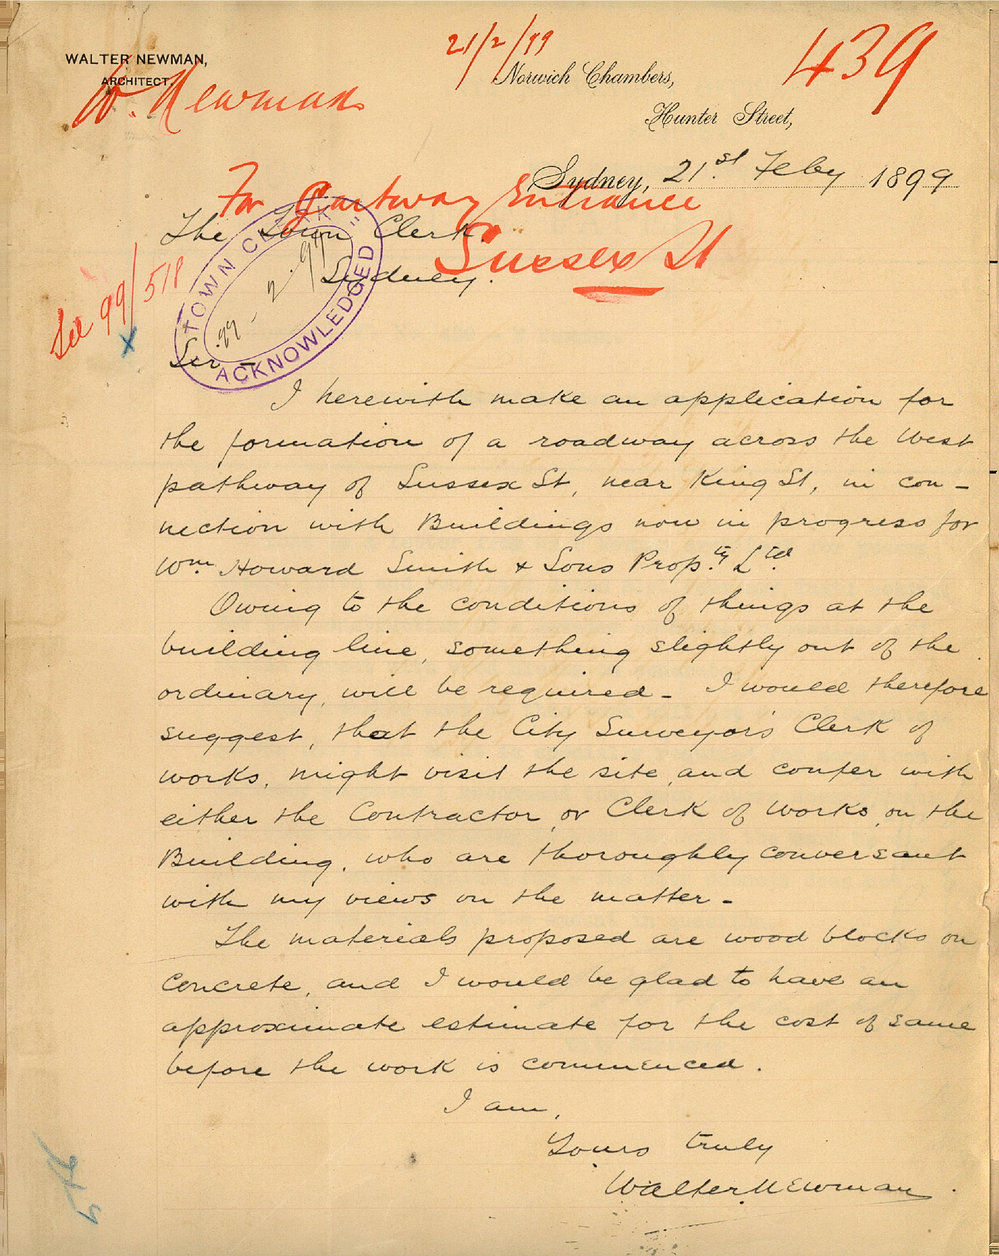 21/2/99
439
WALTER NEWMAN,
ARCHITECT.
W. Newman
Norwich Chambers,
Hunter Street,
Sydney, 21st Feby 1899
For Cartway Entrance
Sussex St
The Town Clerk.
Sydney.
See 99/518
x
TOWN CLERK
ACKNOWLEDGED
Sir -
I herewith make an application for
the formation of a roadway across the West
pathway of Sussex St, near King St, in con-
nection with Buildings now in progress for
Wm Howard Smith & Sons Propty Ltd.
Owing to the conditions of things at the
building line, something slightly out of the
ordinary, will be required - I would therefore
suggest, that the City Surveyor's Clerk of
works, might visit the site, and confer with
either the Contractor, or Clerk of Works, on the
Building, who are thoroughly conversant
with my views on the matter -
The materials proposed are wood blocks on
Concrete, and I would be glad to have an
approximate estimate for the cost of same
before the work is commenced.
I am,
Yours truly
Walter Newman